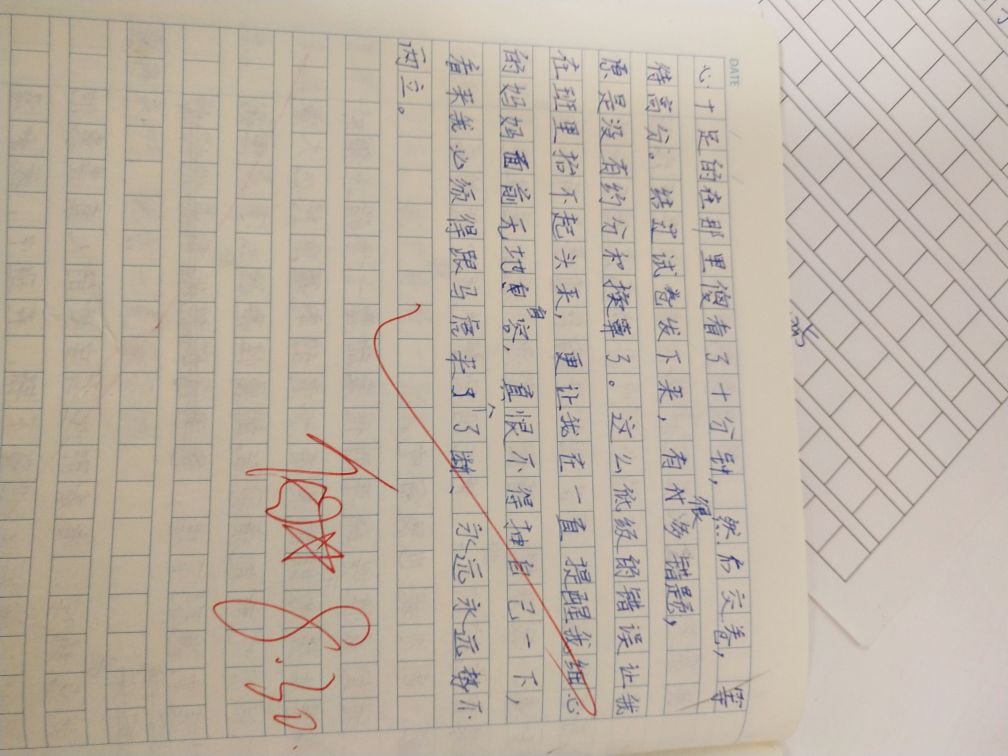 DATE
心十足的在那里傻看了十分钟，然后交卷，等
待高分。结过试卷发下来，有好多错题，
很
原是没有约分和换算了。这么低级的错误让我
在班里抬不起头来，更让我在一直提醒我细心
的妈妈面前无地自容，真恨不得抽自己一下，
看来我必须得跟马虎来个了断、永远永远势不
两立。
8.30